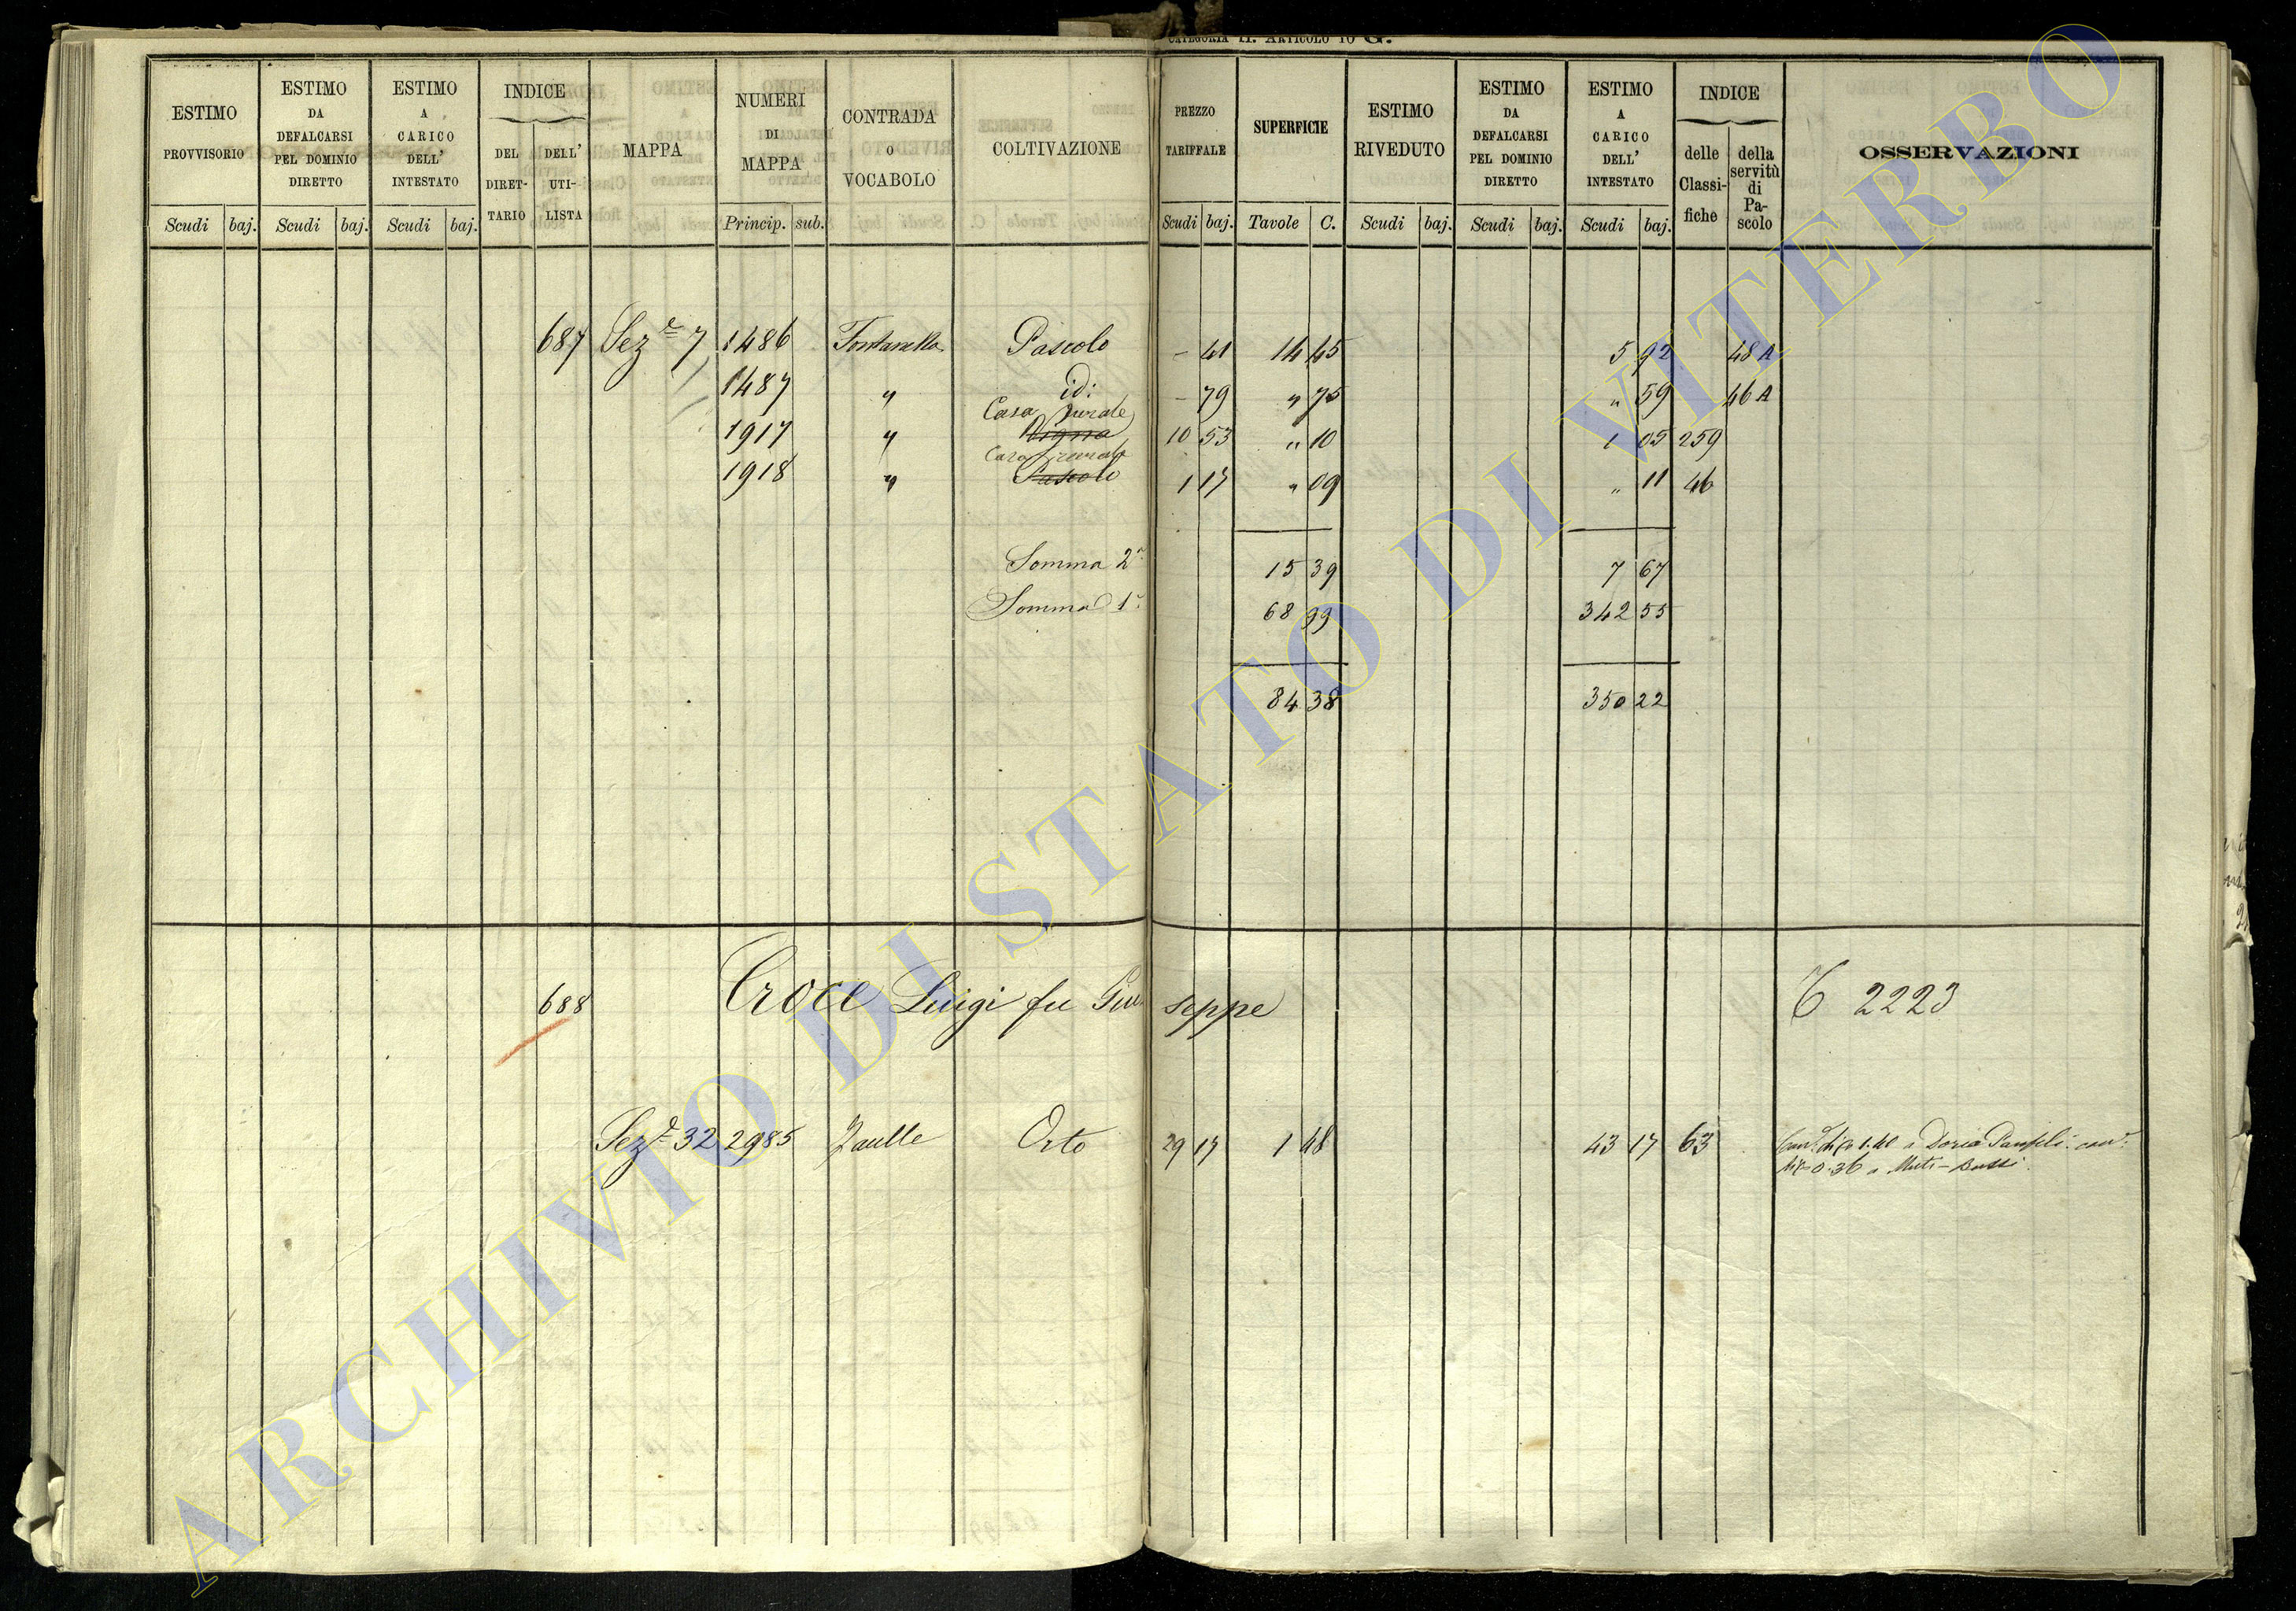 CATEGORIA II. ARTICOLO 10 G.
ESTIMO PROVVISORIO
Scudi baj.
ESTIMO DA DEFALCARSI PEL DOMINIO DIRETTO
Scudi baj.
ESTIMO A CARICO DELL' INTESTATO
Scudi baj.
INDICE
DEL DIRET- TARIO
DELL' UTI- LISTA
MAPPA
NUMERI DI MAPPA
Princip. sub.
CONTRADA O VOCABOLO
COLTIVAZIONE
PREZZO TARIFFALE
Scudi baj.
SUPERFICIE
Tavole C.
ESTIMO RIVEDUTO
Scudi baj.
ESTIMO DA DEFALCARSI PEL DOMINIO DIRETTO
Scudi baj.
ESTIMO A CARICO DELL' INTESTATO
Scudi baj.
INDICE
delle Classi- fiche
della servitù di Pa- scolo
OSSERVAZIONI
687 Sez.e 7 1486 Fontanella Pascolo - 41 14 45 5 92 48 A
1487 " id: - 79 " 75 " 59 46 A
Casa rurale
1917 " Vigna 10 53 " 10 1 05 259
Casa rurale
1918 " Pascolo 1 17 " 09 " 11 46
Somma 2a 15 39 7 67
Somma 1a 68 99 342 55
84 38 350 22
688 Croce Luigi fu Giuseppe 2223
Sez.e 32 2985 Zaulle Orto 29 17 1 48 43 17 63 1.40 a Doria Panfili
0.36 a Muti-Bussi
ARCHIVIO DI STATO DI VITERBO